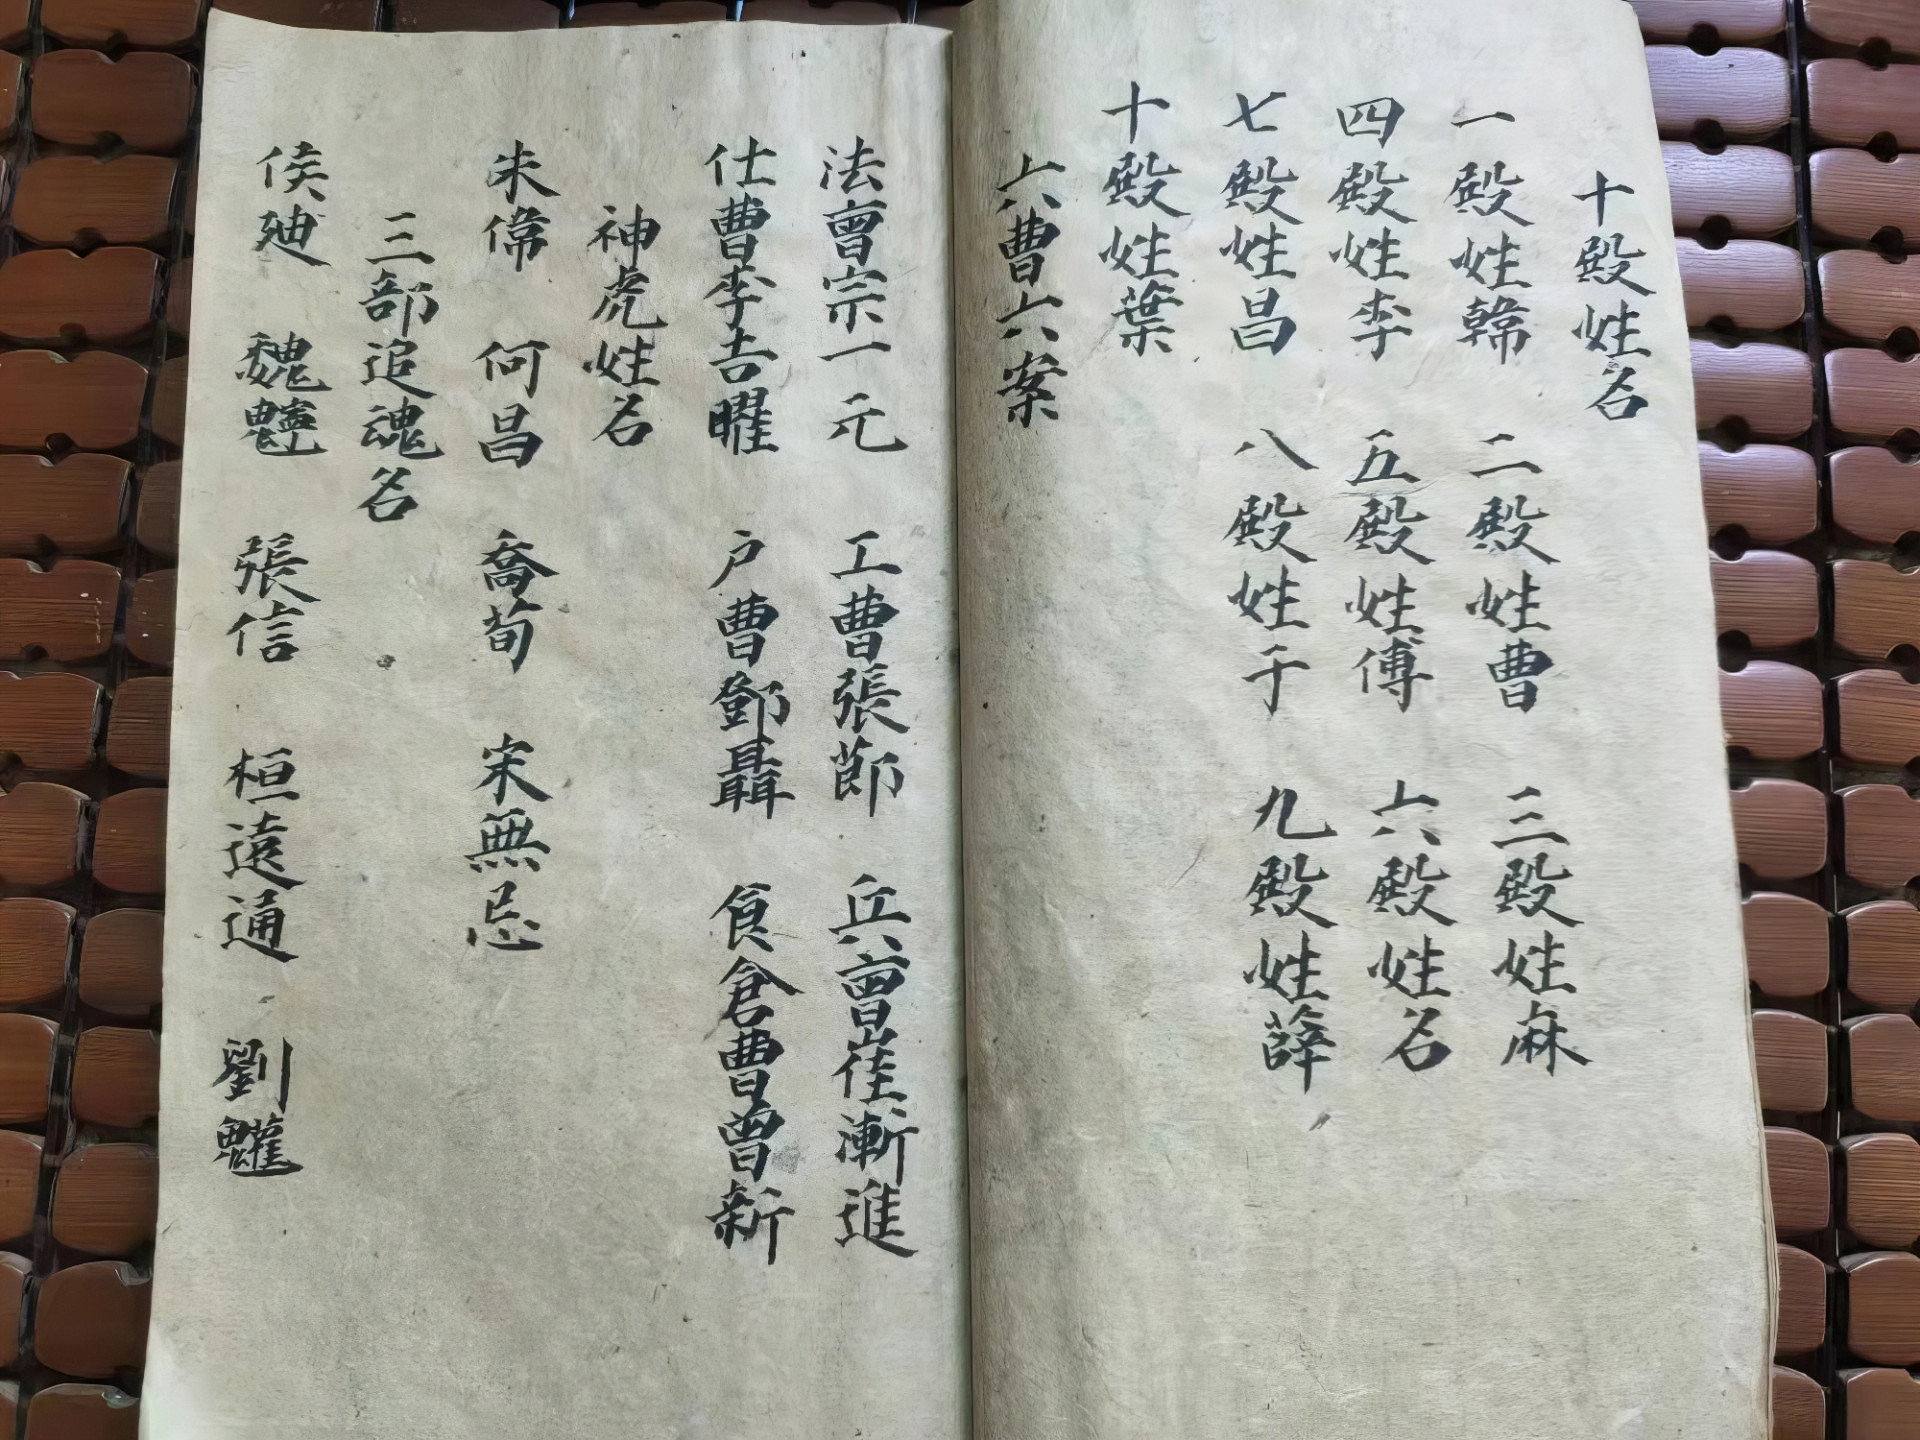 十殿姓名
一殿姓韓 二殿姓曹 三殿姓麻
四殿姓李 五殿姓傅 六殿姓名
七殿姓昌 八殿姓于 九殿姓薛
十殿姓葉
六曹六案
法曹宗一元 工曹張節 兵曹崔漸進
仕曹李吉曜 户曹鄧聶 食倉曹曾新
神虎姓名
朱偉 何昌 喬荀 宋無忌
三部追魂名
侯廸 魏 張信 桓遠通 劉